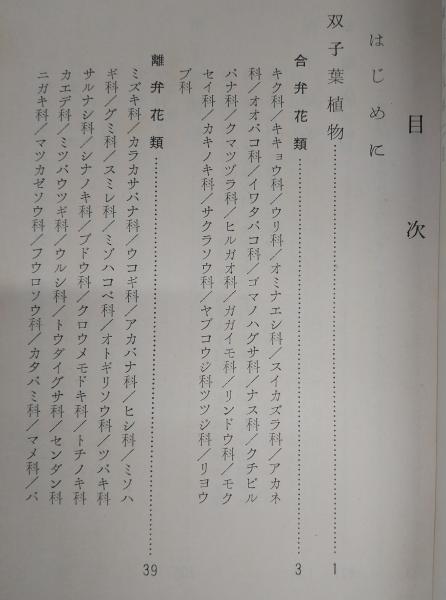 目次
はじめに
双子葉植物……………………1
合弁花類……………………3
キク科/キキョウ科/ウリ科/オミナエシ科/スイカズラ科/アカネ
科/オオバコ科/イワタバコ科/ゴマノハグサ科/ナス科/クチビル
バナ科/クマツヅラ科/ヒルガオ科/ガガイモ科/リンドウ科/モク
セイ科/カキノキ科/サクラソウ科/ヤブコウジ科ツツジ科/リョウ
ブ科
離弁花類……………………39
ミズキ科/カラカサバナ科/ウコギ科/アカバナ科/ヒシ科/ミソハ
ギ科/グミ科/スミレ科/ミゾハコベ科/オトギリソウ科/ツバキ科
サルナシ科/シナノキ科/ブドウ科/クロウメモドキ科/トチノキ科
カエデ科/ミツバウツギ科/ウルシ科/トウダイグサ科/センダン科
ニガキ科/マツカゼソウ科/フウロソウ科/カタバミ科/マメ科/バ